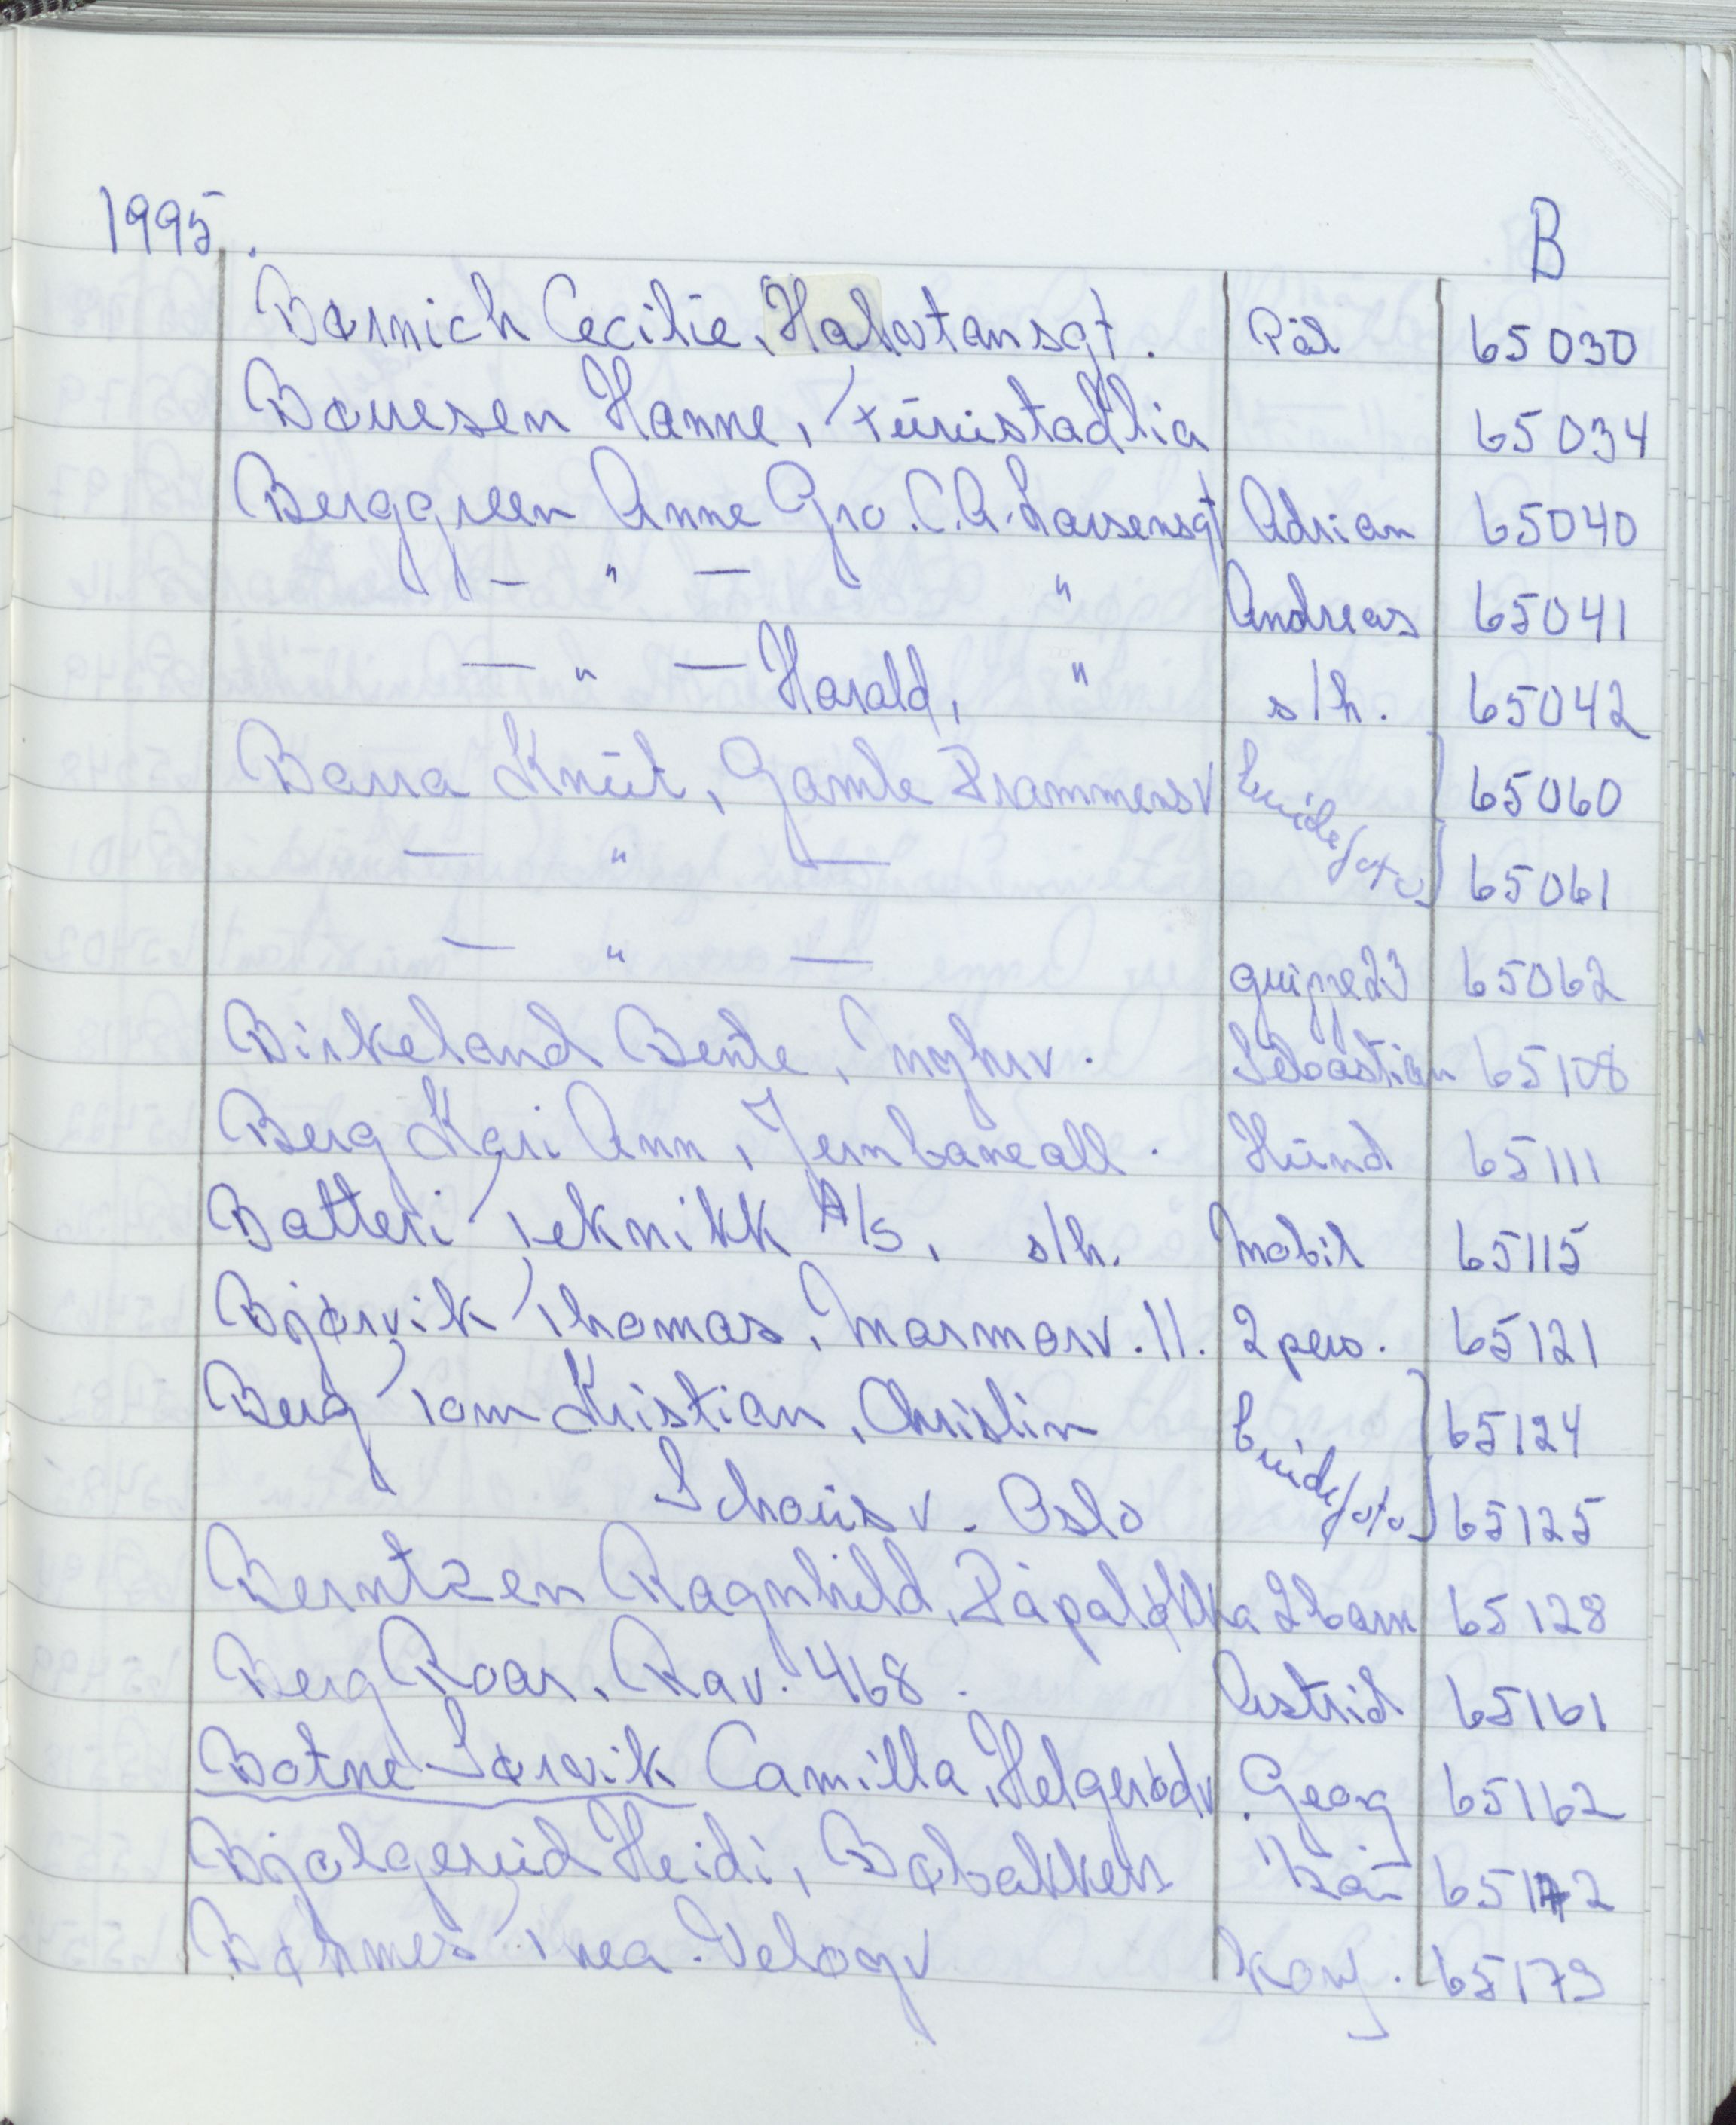 1995. B
Børnich Cecilie, Halvtansgt. Pål 65030
Bøuesen Hanne, Furustadlia 65034
Berggreen Anne Gro. C.A. Larsensgt Adrian 65040
— " — " Andreas 65041
— " — Harald, " s/h. 65042
Barra Knut, Gamle Drammensv brudefoto 65060
— " — 65061
— " — gruppe 23 65062
Birkeland Bente, Myhrv. Sebastian 65108
Berg Kari Ann, Jernbaneall. Hund 65111
Batteri Teknikk A/S, s/h. Mobil 65115
Bjørvik Thomas, Marmorv. 11. 2 pers. 65121
Berg Tom Kristian, Christin brudefoto 65124
Schousv. Oslo 65125
Berntzen Ragnhild, 2 barn 65128
Berg Roar, Rav. 468. Astrid 65161
Botne-Sørvik Camilla, Helgerødv. Georg 65162
Bjølgerud Heidi, Bøbakken 65172
Bøhmer Thea. Selogv konf. 65173